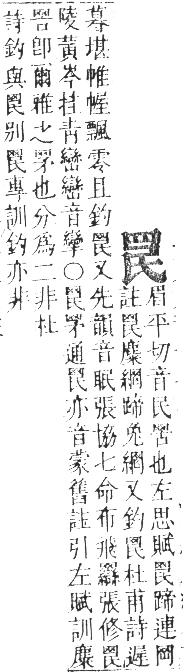 罠
眉平切音民罟也左思賦罠蹄連网
註罠麋網蹄兎網又釣罠杜甫詩遲
暮堪帷幄飄零且釣罠又先韻音眠張協七命布飛䍡張修罠
陵黃岑挂靑巒巒音攣○罠罞通罠亦音蒙舊註引左賦訓麋
罟卽爾雅之罞也分爲二非杜
詩釣與罠別罠專訓釣亦非